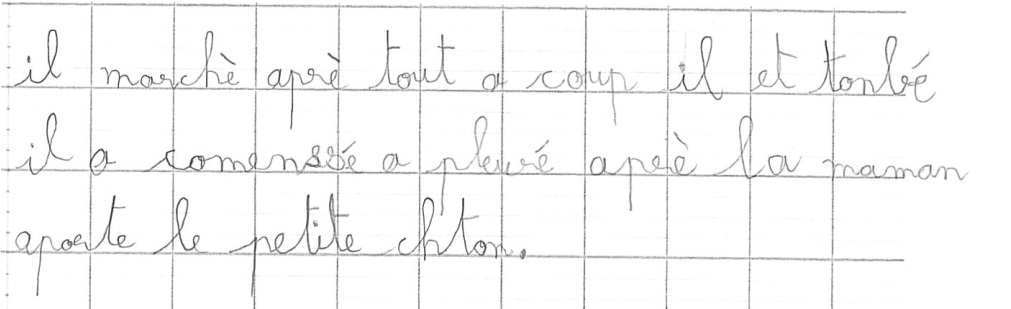 il marchè aprè tout a coup il et tonbé
il a comenssé a pleuré aprè la maman
aporte le petite ch'ton.